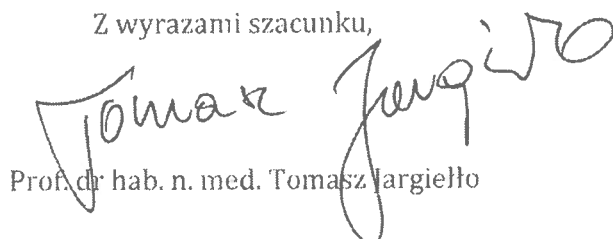 Z wyrazami szacunku,
Tomasz Jargiełło
Prof. dr hab. n. med. Tomasz Jargiełło